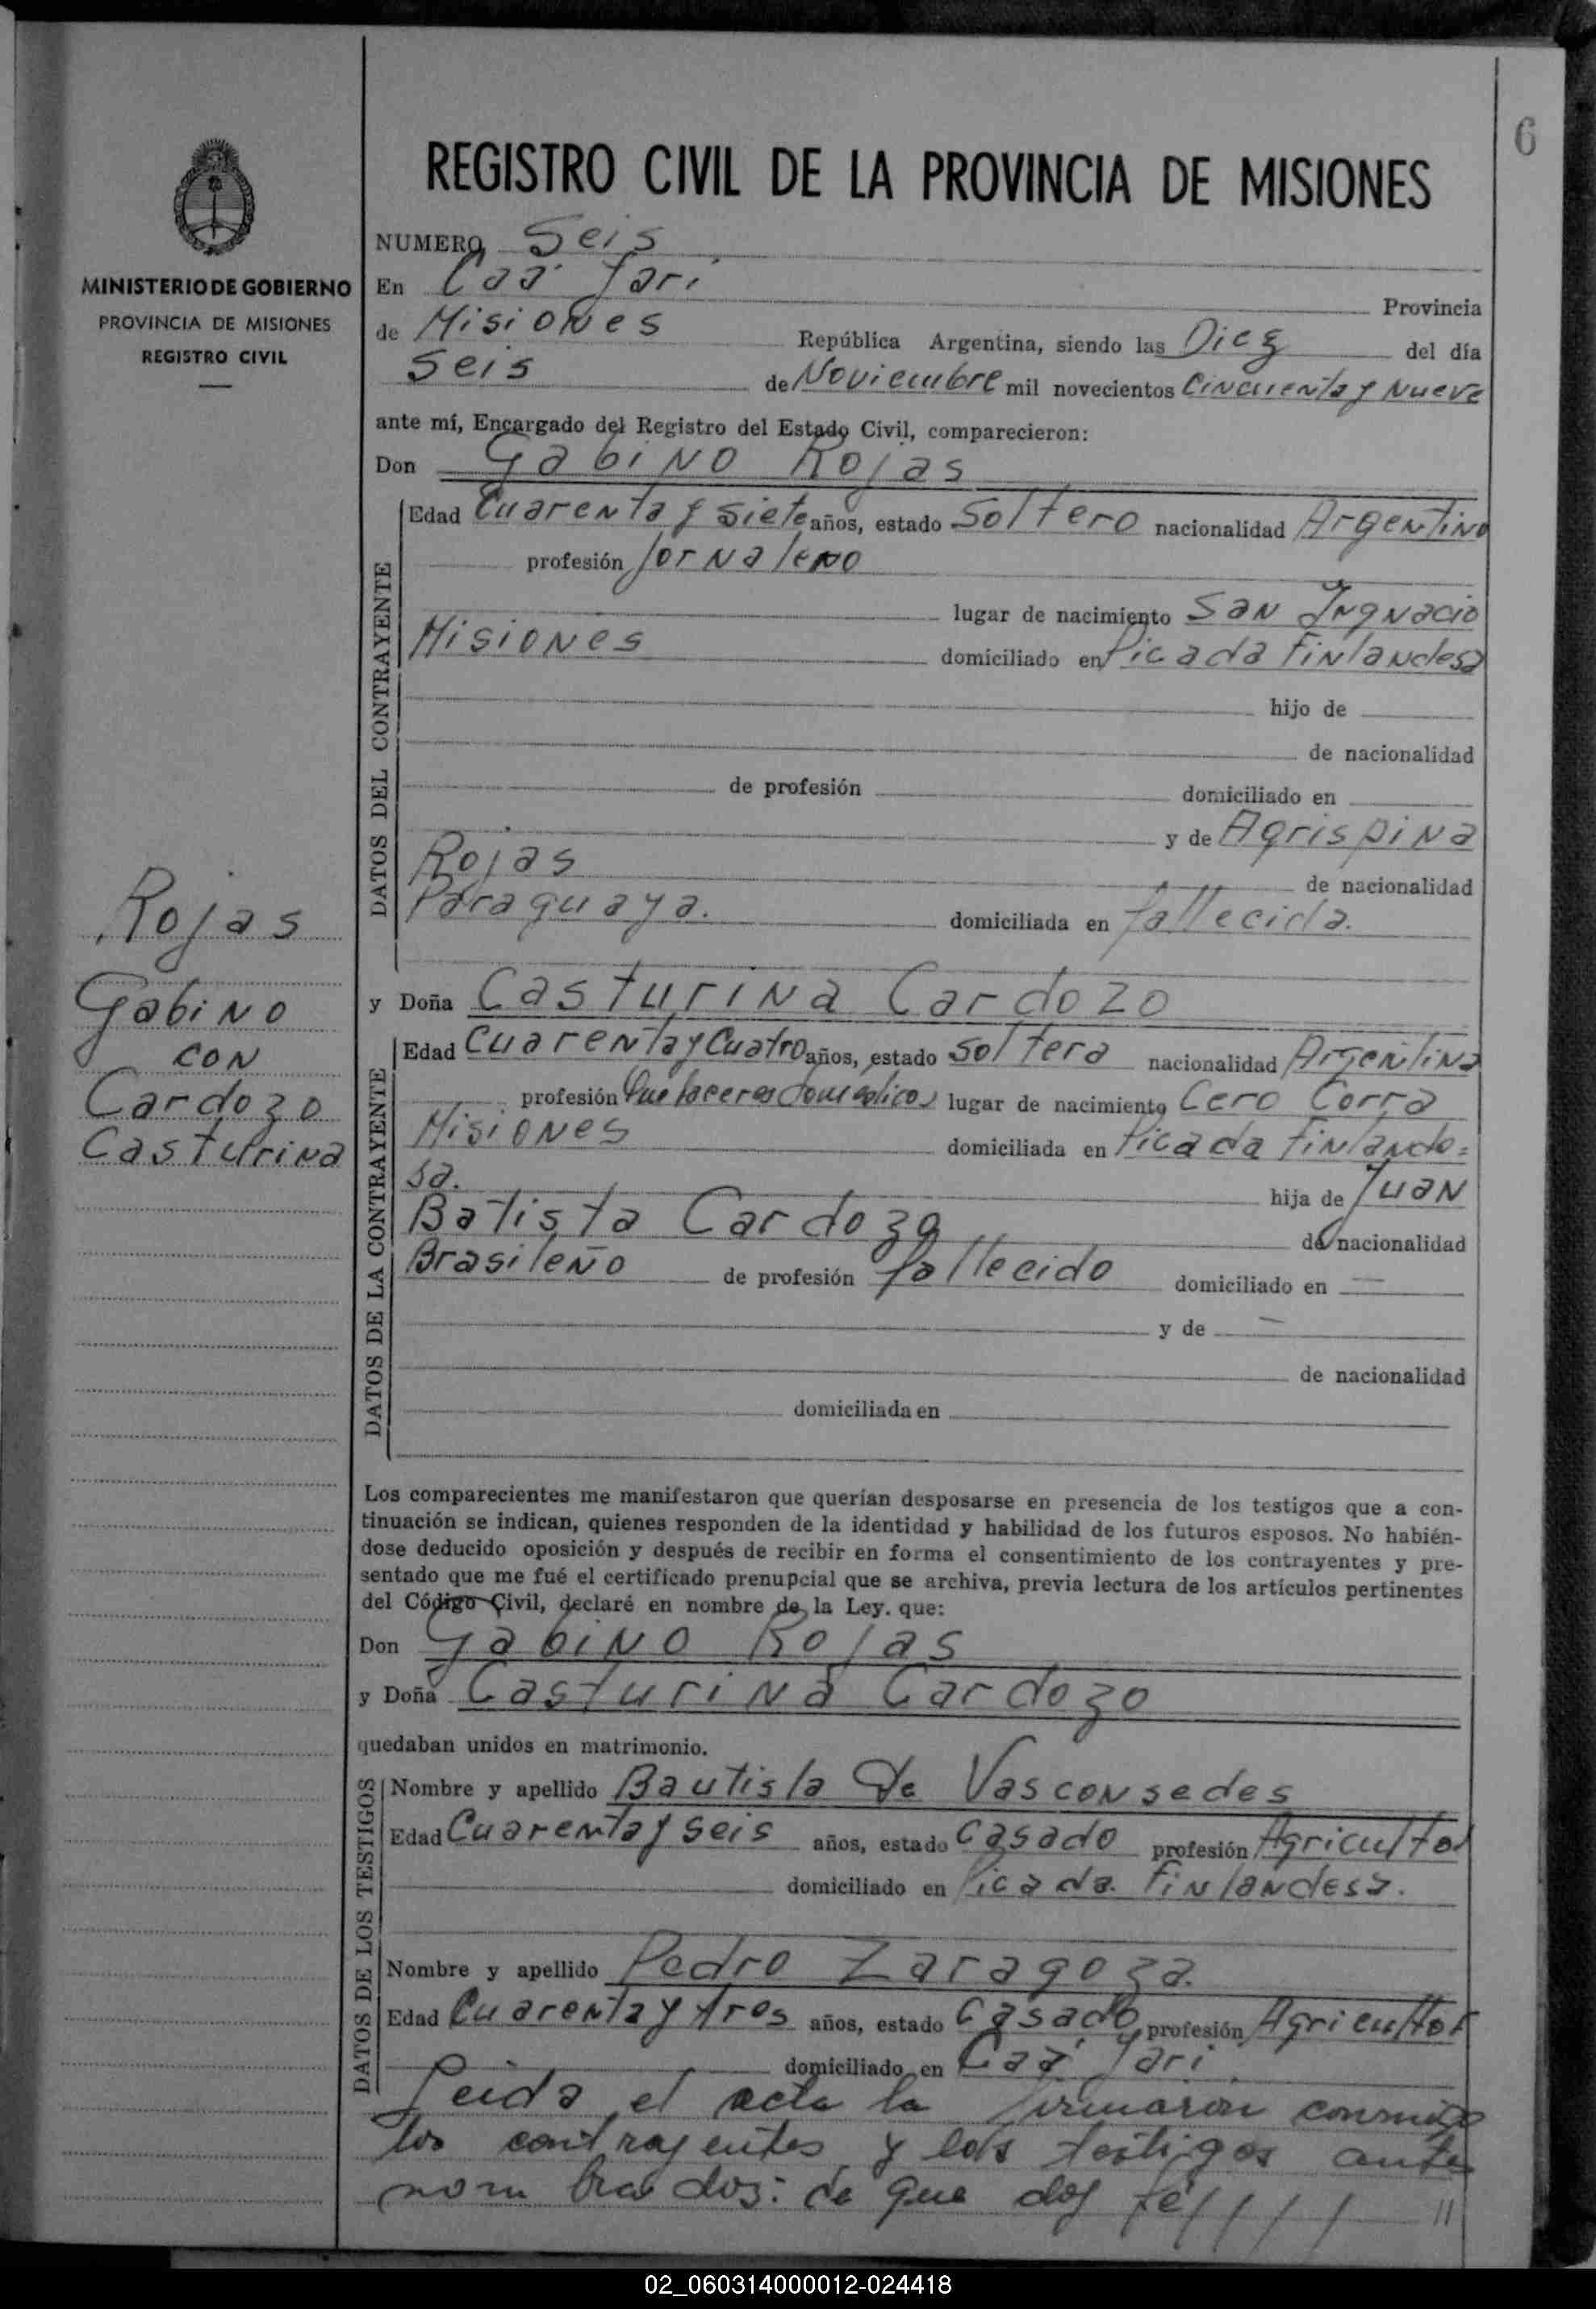 6
REGISTRO CIVIL DE LA PROVINCIA DE MISIONES
MINISTERIO DE GOBIERNO
PROVINCIA DE MISIONES
REGISTRO CIVIL
NUMERO Seis
En Caá Yarí Provincia
de Misiones República Argentina, siendo las Diez del día
Seis de Noviembre mil novecientos Cincuenta y Nueve
ante mí, Encargado del Registro del Estado Civil, comparecieron:
Don Gabino Rojas
DATOS DEL CONTRAYENTE
Edad Cuarenta y Siete años, estado Soltero nacionalidad Argentino
profesión Jornalero
lugar de nacimiento San Ingnacio
Misiones domiciliado en Picada Finlandesa
hijo de
de nacionalidad
de profesión domiciliado en
y de Agrispina
Rojas de nacionalidad
Paraguaya. domiciliada en fallecida.
Rojas
Gabino
con
Cardozo
Casturina
y Doña Casturina Cardozo
DATOS DE LA CONTRAYENTE
Edad Cuarenta y Cuatro años, estado Soltera nacionalidad Argentina
profesión Que haceres domesticos lugar de nacimiento Cero Corra
Misiones domiciliada en Picada Finlande=
sa. hija de Juan
Batista Cardozo de nacionalidad
Brasileño de profesión fallecido domiciliado en —
y de —
de nacionalidad
domiciliada en
Los comparecientes me manifestaron que querían desposarse en presencia de los testigos que a con-
tinuación se indican, quienes responden de la identidad y habilidad de los futuros esposos. No habién-
dose deducido oposición y después de recibir en forma el consentimiento de los contrayentes y pre-
sentado que me fué el certificado prenupcial que se archiva, previa lectura de los artículos pertinentes
del Código Civil, declaré en nombre de la Ley. que:
Don Gabino Rojas
y Doña Casturina Cardozo
quedaban unidos en matrimonio.
DATOS DE LOS TESTIGOS
Nombre y apellido Bautista de Vasconsedes
Edad Cuarenta y seis años, estado Casado profesión Agricultor
domiciliado en Picada Finlandesa.
Nombre y apellido Pedro Zaragoza.
Edad Cuarenta y tres años, estado Casado profesión Agricultor
domiciliado en Caá Yarí
Leida el acta la firmaron conmigo
los contrayentes y los testigos ante
nombrados: de que doy fé//// //
02_060314000012-024418